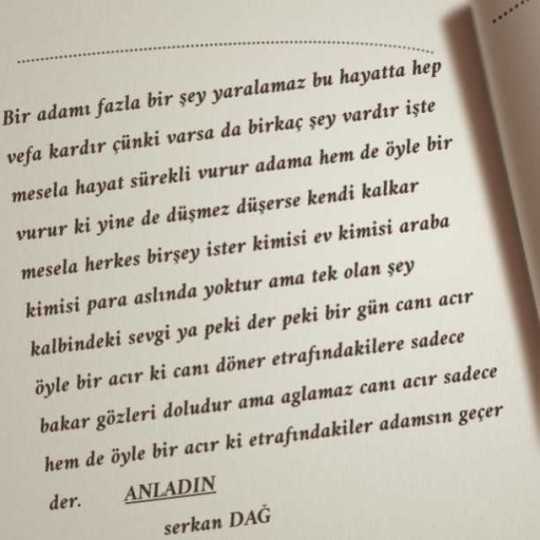 Bir adamı fazla bir şey yaralamaz bu hayatta hep
vefa kardır çünki varsa da birkaç şey vardır işte
mesela hayat sürekli vurur adama hem de öyle bir
vurur ki yine de düşmez düşerse kendi kalkar
mesela herkes birşey ister kimisi ev kimisi araba
kimisi para aslında yoktur ama tek olan şey
kalbindeki sevgi ya peki der peki bir gün canı acır
öyle bir acır ki canı döner etrafındakilere sadece
bakar gözleri doludur ama aglamaz canı acır sadece
hem de öyle bir acır ki etrafındakiler adamsın geçer
der. ANLADIN
serkan DAĞ